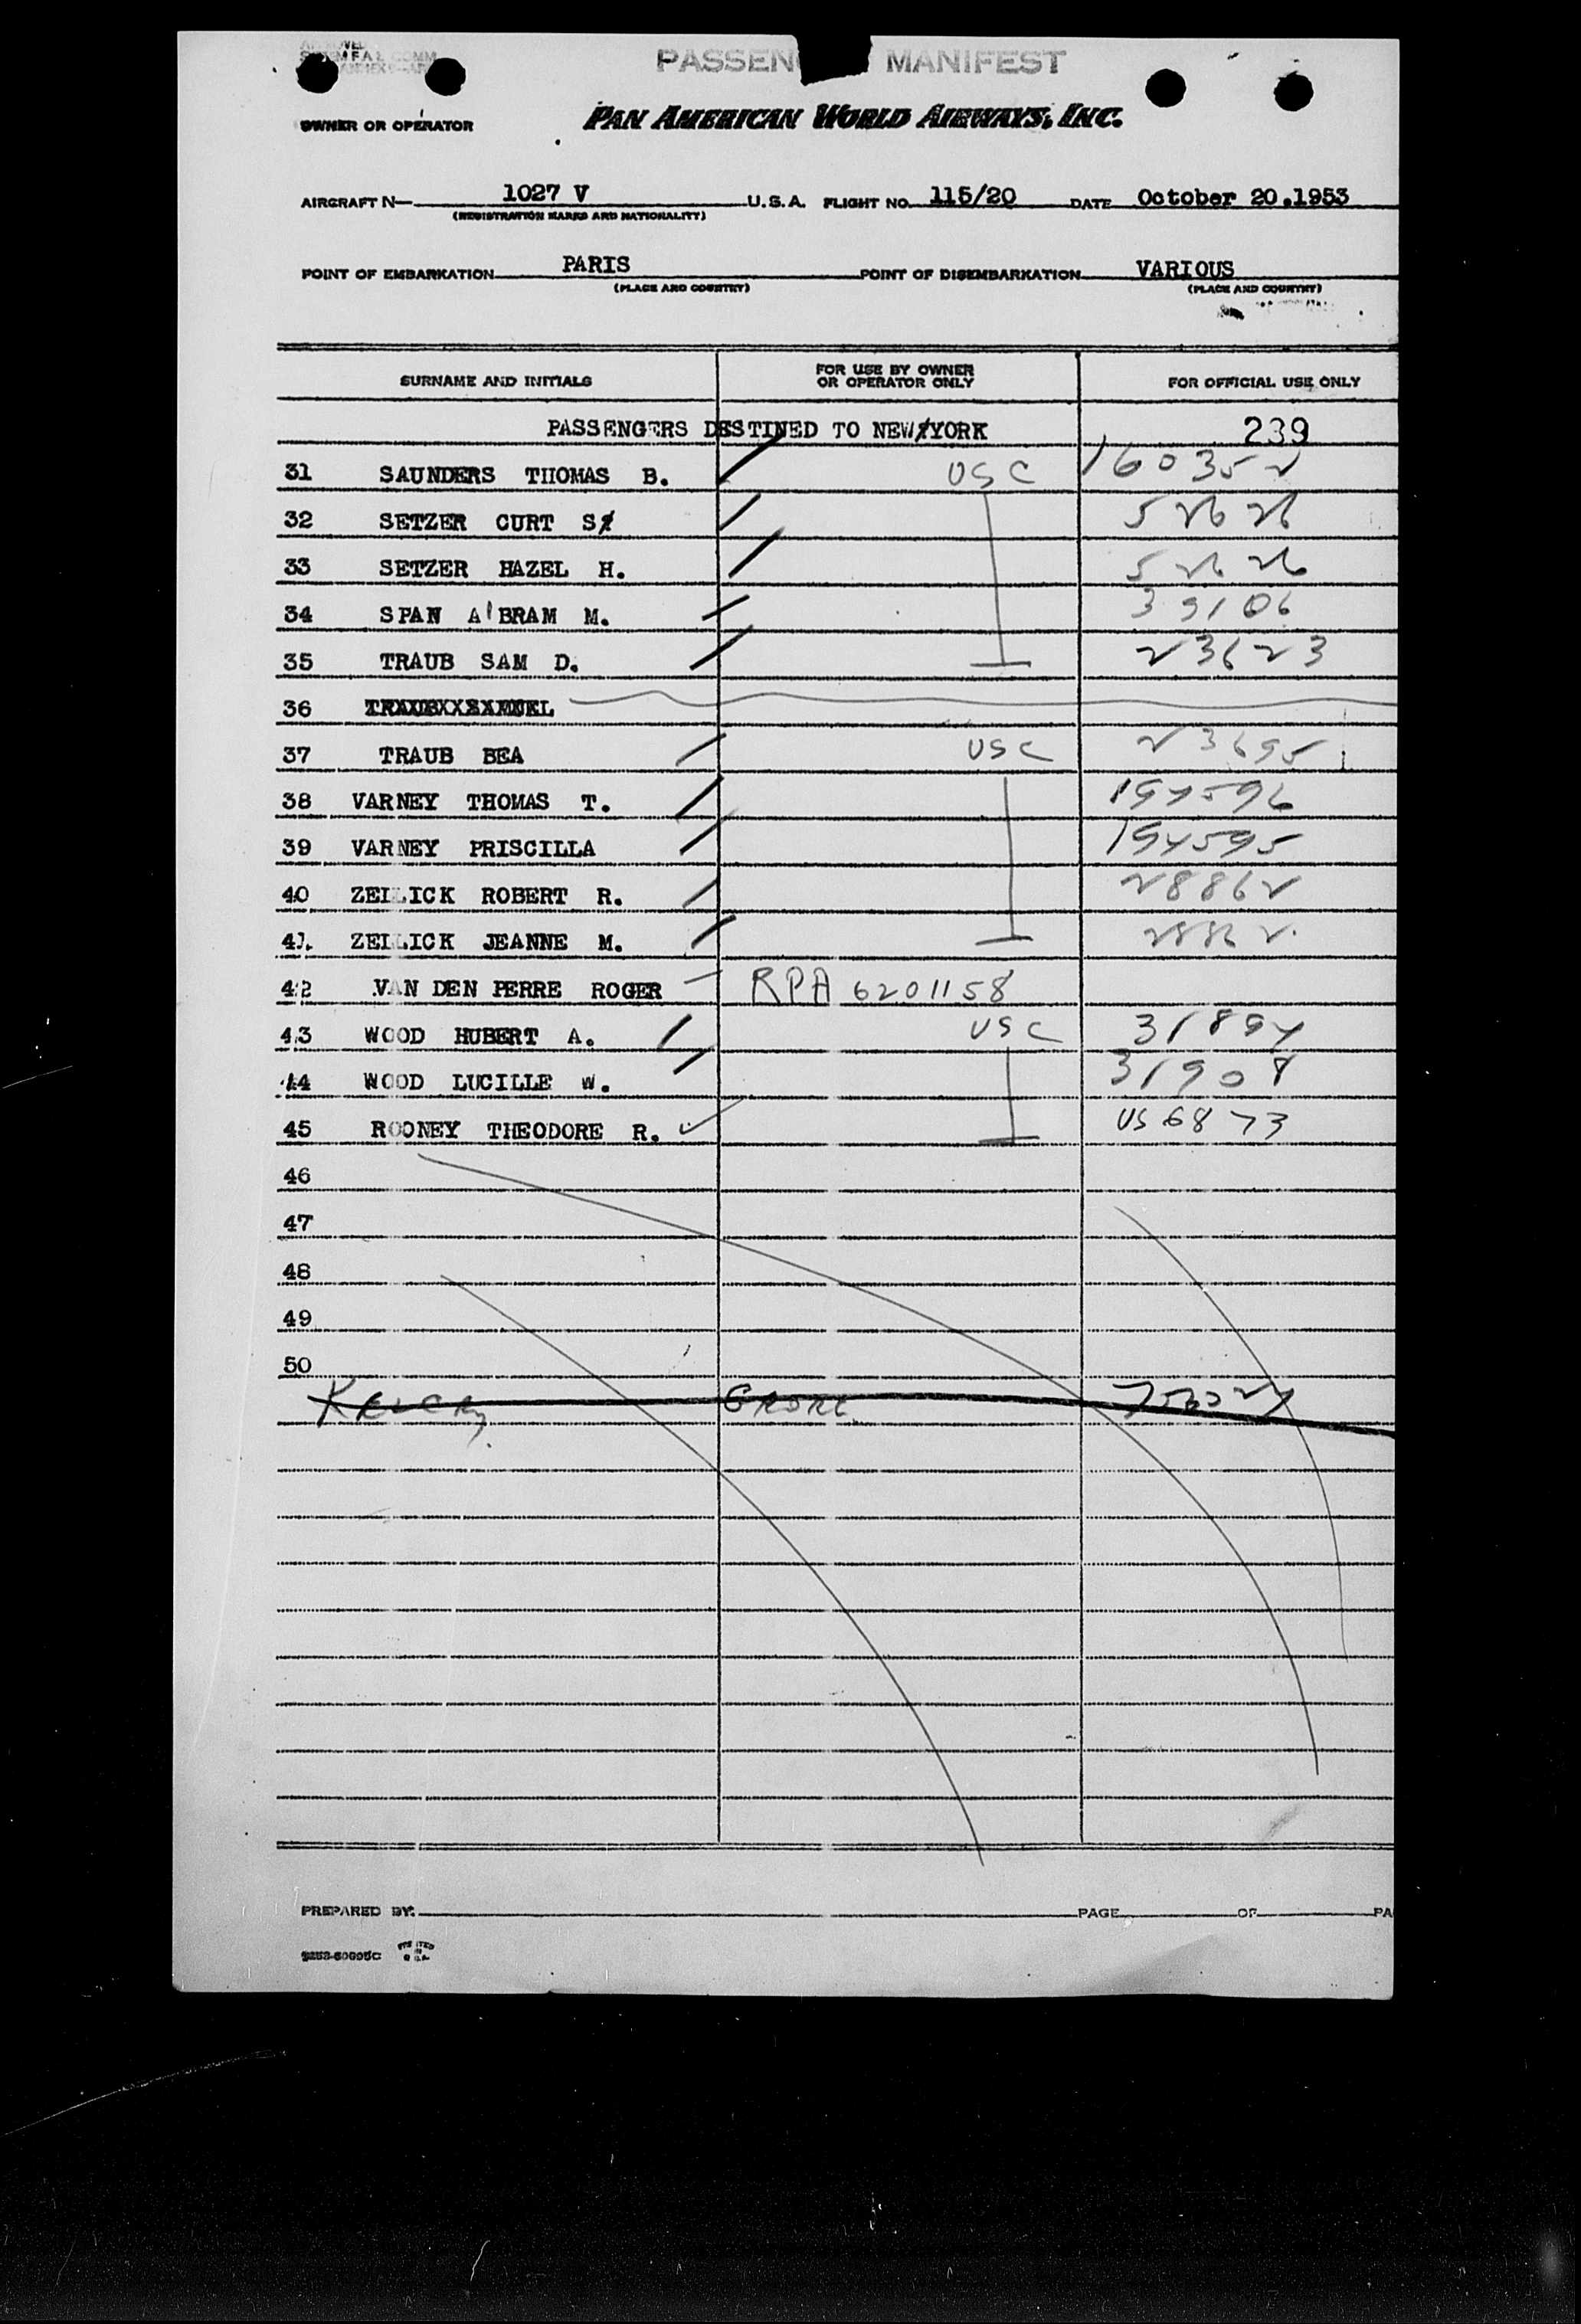 PASSENG MANIFEST
OWNER OR OPERATOR PAN AMERICAN WORLD AIRWAYS, INC.
AIRCRAFT N— 1027 V U.S.A. FLIGHT NO. 115/20 DATE October 20.1953
(REGISTRATION MARKS AND NATIONALITY)
POINT OF EMBARKATION PARIS POINT OF DISEMBARKATION VARIOUS
(PLACE AND COUNTRY) (PLACE AND COUNTRY)
SURNAME AND INITIALS FOR USE BY OWNER OR OPERATOR ONLY FOR OFFICIAL USE ONLY
PASSENGERS DESTINED TO NEW/YORK 239
31 SAUNDERS THOMAS B. USC 160352
32 SETZER CURT S 52626
33 SETZER HAZEL H. 52626
34 SPAN A'BRAM M. 39106
35 TRAUB SAM D. 23623
36
37 TRAUB BEA USC 23695
38 VARNEY THOMAS T. 194596
39 VARNEY PRISCILLA 194595
40 ZELLICK ROBERT R. 28862
41 ZELLICK JEANNE M. 28862
42 VAN DEN PERRE ROGER RPA 6201158
43 WOOD HUBERT A. USC 31894
44 WOOD LUCILLE W. 31908
45 ROONEY THEODORE R. US 6873
46
47
48
49
50
PREPARED BY: PAGE OF PA